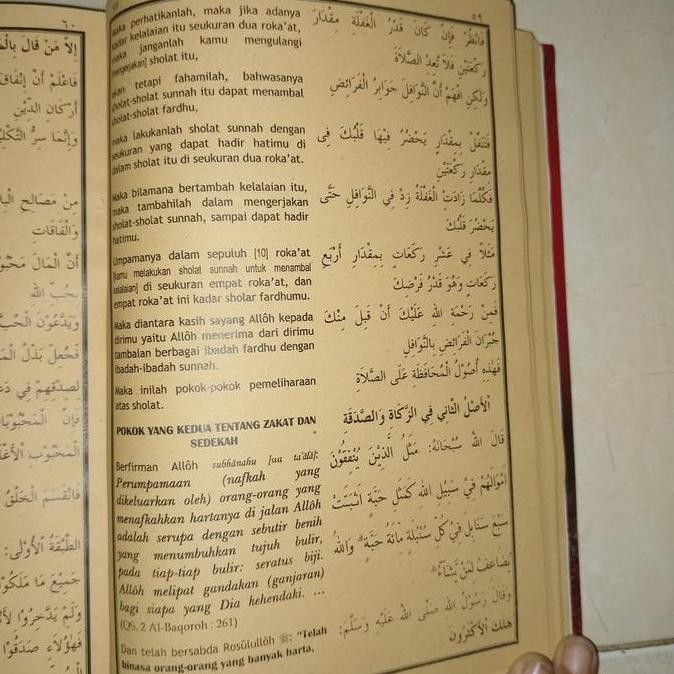 ٦٠
إِلاَّ مَنْ قَالَ
فَاعْلَمْ أَنَّ
أَرْكَانِ الدِّيْنِ
وَإِنَّمَا سِرُّ
مِنْ مَصَالِحِ
وَالْفَاقَاتِ
أَنَّ الْمَالَ
بِحُبِّ الله
وَيَدَّعُوْنَ
فَجُعِلَ بَذْلُ
لِصِدْقِهِمْ فِي
فَإِنَّ
الْمَحْبُوْبِ
فَانْقَسَمَ الْخَلْقُ
الطَّبَقَةُ الْأُوْلَى:
جَمِيْعَ مَا مَلَكُوْا
وَلَمْ يَدَّخِرُوْا
فَهٰؤُلَاءِ صَدَقُوْا
٥٩
Maka perhatikanlah, maka jika adanya
kadar kelalaian itu seukuran dua roka'at,
maka janganlah kamu mengulangi
[mengerjakan] sholat itu,
akan tetapi fahamilah, bahwasanya
sholat-sholat sunnah itu dapat menambal
sholat-sholat fardhu,
maka lakukanlah sholat sunnah dengan
seukuran yang dapat hadir hatimu di
dalam sholat itu di seukuran dua roka'at.
Maka bilamana bertambah kelalaian itu,
maka tambahilah dalam mengerjakan
sholat-sholat sunnah, sampai dapat hadir
hatimu.
Umpamanya dalam sepuluh [10] roka'at
[kamu melakukan sholat sunnah untuk menambal
kelalaian] di seukuran empat roka'at, dan
empat roka'at ini kadar sholar fardhumu.
Maka diantara kasih sayang Allôh kepada
dirimu yaitu Allôh menerima dari dirimu
tambalan berbagai ibadah fardhu dengan
ibadah-ibadah sunnah.
Maka inilah pokok-pokok pemeliharaan
atas sholat.
POKOK YANG KEDUA TENTANG ZAKAT DAN
SEDEKAH
Berfirman Allôh subhânahu [wa ta'âlâ]:
Perumpamaan (nafkah yang
dikeluarkan oleh) orang-orang yang
menafkahkan hartanya di jalan Allôh
adalah serupa dengan sebutir benih
yang menumbuhkan tujuh bulir,
pada tiap-tiap bulir: seratus biji.
Allôh melipat gandakan (ganjaran)
bagi siapa yang Dia kehendaki. ...
(QS. 2 Al-Baqoroh : 261)
Dan telah bersabda Rosûlullôh ﷺ: "Telah
binasa orang-orang yang banyak harta,
فَانْظُرْ فَإِنْ كَانَ قَدْرُ الْغَفْلَةِ مِقْدَارَ
رَكْعَتَيْنِ فَلَا تُعِدِ الصَّلَاةَ
وَلٰكِنِ افْهَمْ أَنَّ النَّوَافِلَ جَوَابِرُ الْفَرَائِضِ
فَتَنَفَّلْ بِمِقْدَارِ يَحْضُرُ فِيْهَا قَلْبُكَ فِى
مِقْدَارِ رَكْعَتَيْنِ
فَكُلَّمَا زَادَتِ الْغَفْلَةُ زِدْ فِي النَّوَافِلِ حَتَّى
يَحْضُرَ قَلْبُكَ
مَثَلًا فِي عَشْرِ رَكَعَاتٍ بِمِقْدَارِ أَرْبَعِ
رَكَعَاتٍ وَهُوَ قَدْرُ فَرْضِكَ
فَمِنْ رَحْمَةِ الله عَلَيْكَ أَنْ قَبِلَ مِنْكَ
جُبْرَانَ الْفَرَائِضِ بِالنَّوَافِلِ
فَهٰذِهِ أُصُوْلُ الْمُحَافَظَةِ عَلَى الصَّلَاةِ
اْلأَصْلُ الثَّانِي فِي الزَّكَاةِ وَالصَّدَقَةِ
قَالَ الله سُبْحَانَهُ: مَثَلُ الَّذِيْنَ يُنْفِقُوْنَ
أَمْوَالَهُمْ فِي سَبِيْلِ الله كَمَثَلِ حَبَّةٍ أَنْبَتَتْ
سَبْعَ سَنَابِلَ فِيْ كُلِّ سُنْبُلَةٍ مِائَةُ حَبَّةٍ ۗ وَاللهُ
يُضَاعِفُ لِمَنْ يَشَاءُ
وَقَالَ رَسُوْلُ الله صَلَّى الله عَلَيْهِ وَسَلَّمَ:
هَلَكَ اْلأَكْثَرُوْنَ